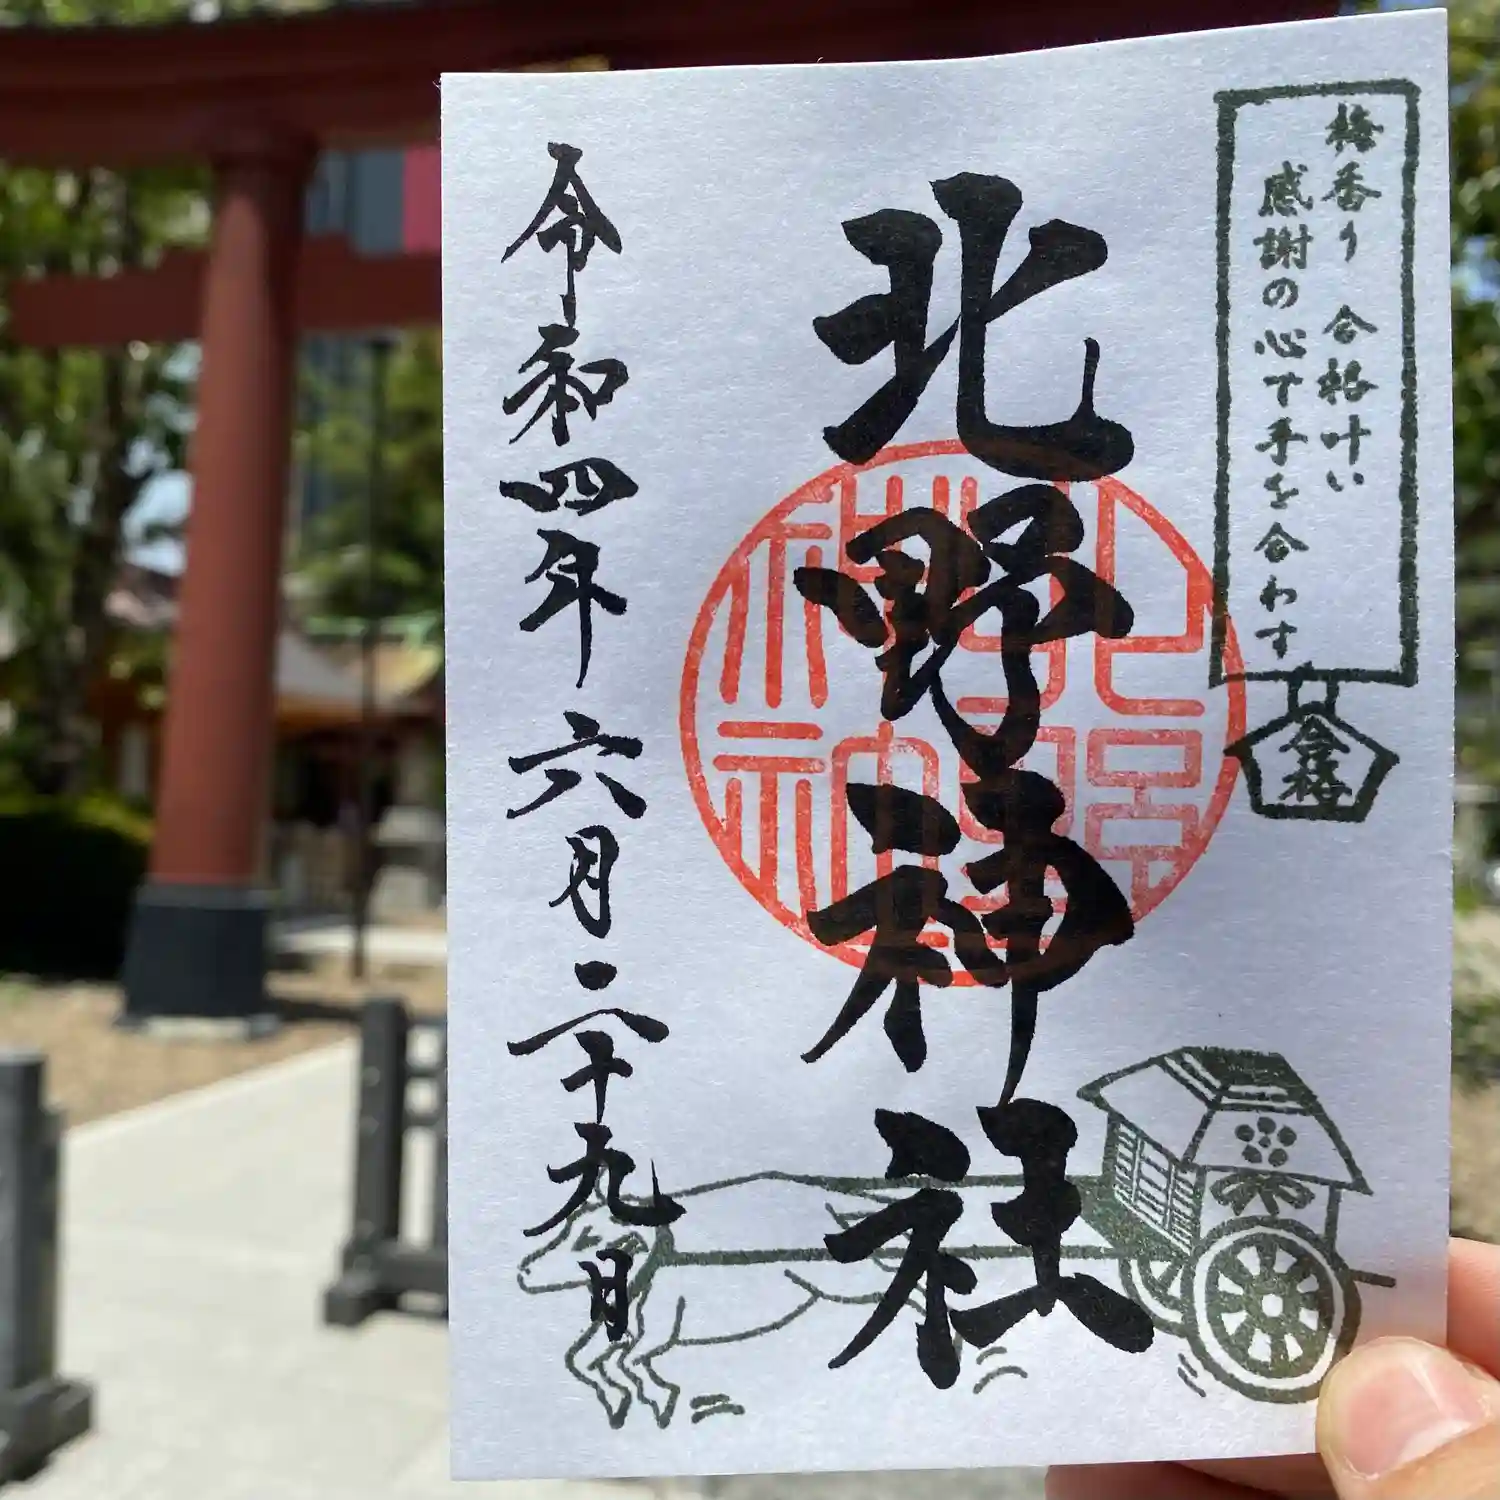 梅香り 合格叶い
感謝の心で手を合わす
合格
北野神社
令和四年 六月二十九日